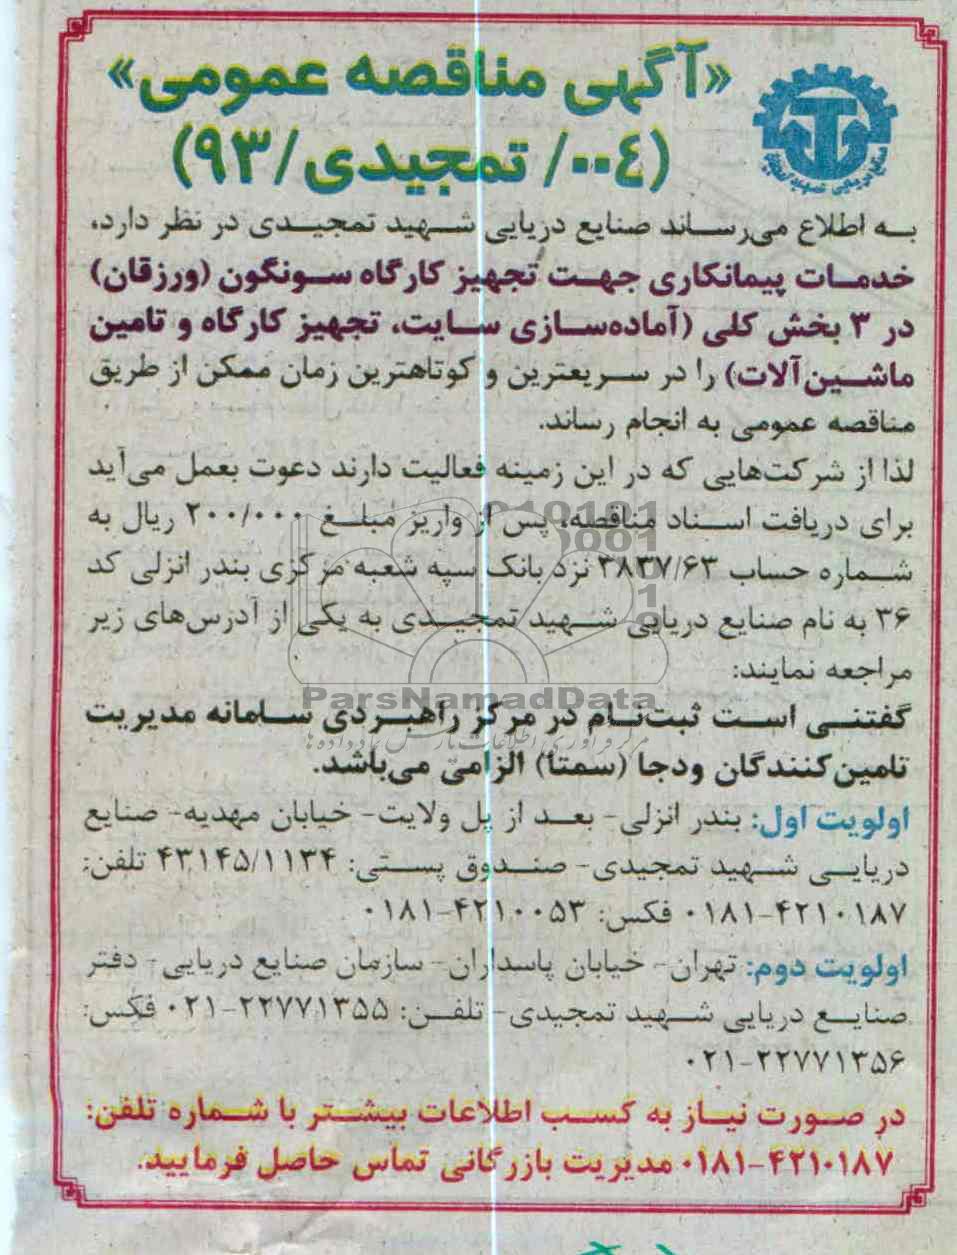 «آگهی مناقصه عمومی»
(۰۰٤/ تمجیدی/۹۳)
به اطلاع می‌رساند صنایع دریایی شهید تمجیدی در نظر دارد،
خدمات پیمانکاری جهت تجهیز کارگاه سونگون (ورزقان)
در ۳ بخش کلی (آماده‌سازی سایت، تجهیز کارگاه و تامین
ماشین‌آلات) را در سریعترین و کوتاهترین زمان ممکن از طریق
مناقصه عمومی به انجام رساند.
لذا از شرکت‌هایی که در این زمینه فعالیت دارند دعوت بعمل می‌آید
برای دریافت اسناد مناقصه، پس از واریز مبلغ ۲۰۰/۰۰۰ ریال به
شماره حساب ۳۸۳۷/۶۳ نزد بانک سپه شعبه مرکزی بندر انزلی کد
۳۶ به نام صنایع دریایی شهید تمجیدی به یکی از آدرس‌های زیر
مراجعه نمایند:
ParsNamadData
گفتنی است ثبت‌نام در مرکز راهبردی سامانه مدیریت
تامین‌کنندگان ودجا (سمتا) الزامی می‌باشد.
اولویت اول: بندر انزلی- بعد از پل ولایت- خیابان مهدیه- صنایع
دریایی شهید تمجیدی- صندوق پستی: ۴۳۱۴۵/۱۱۳۴ تلفن:
۰۱۸۱-۴۲۱۰۱۸۷ فکس: ۰۱۸۱-۴۲۱۰۰۵۳
اولویت دوم: تهران- خیابان پاسداران- سازمان صنایع دریایی- دفتر
صنایع دریایی شهید تمجیدی- تلفن: ۰۲۱-۲۲۷۷۱۳۵۵ فکس:
۰۲۱-۲۲۷۷۱۳۵۶
در صورت نیاز به کسب اطلاعات بیشتر با شماره تلفن:
۰۱۸۱-۴۲۱۰۱۸۷ مدیریت بازرگانی تماس حاصل فرمایید.